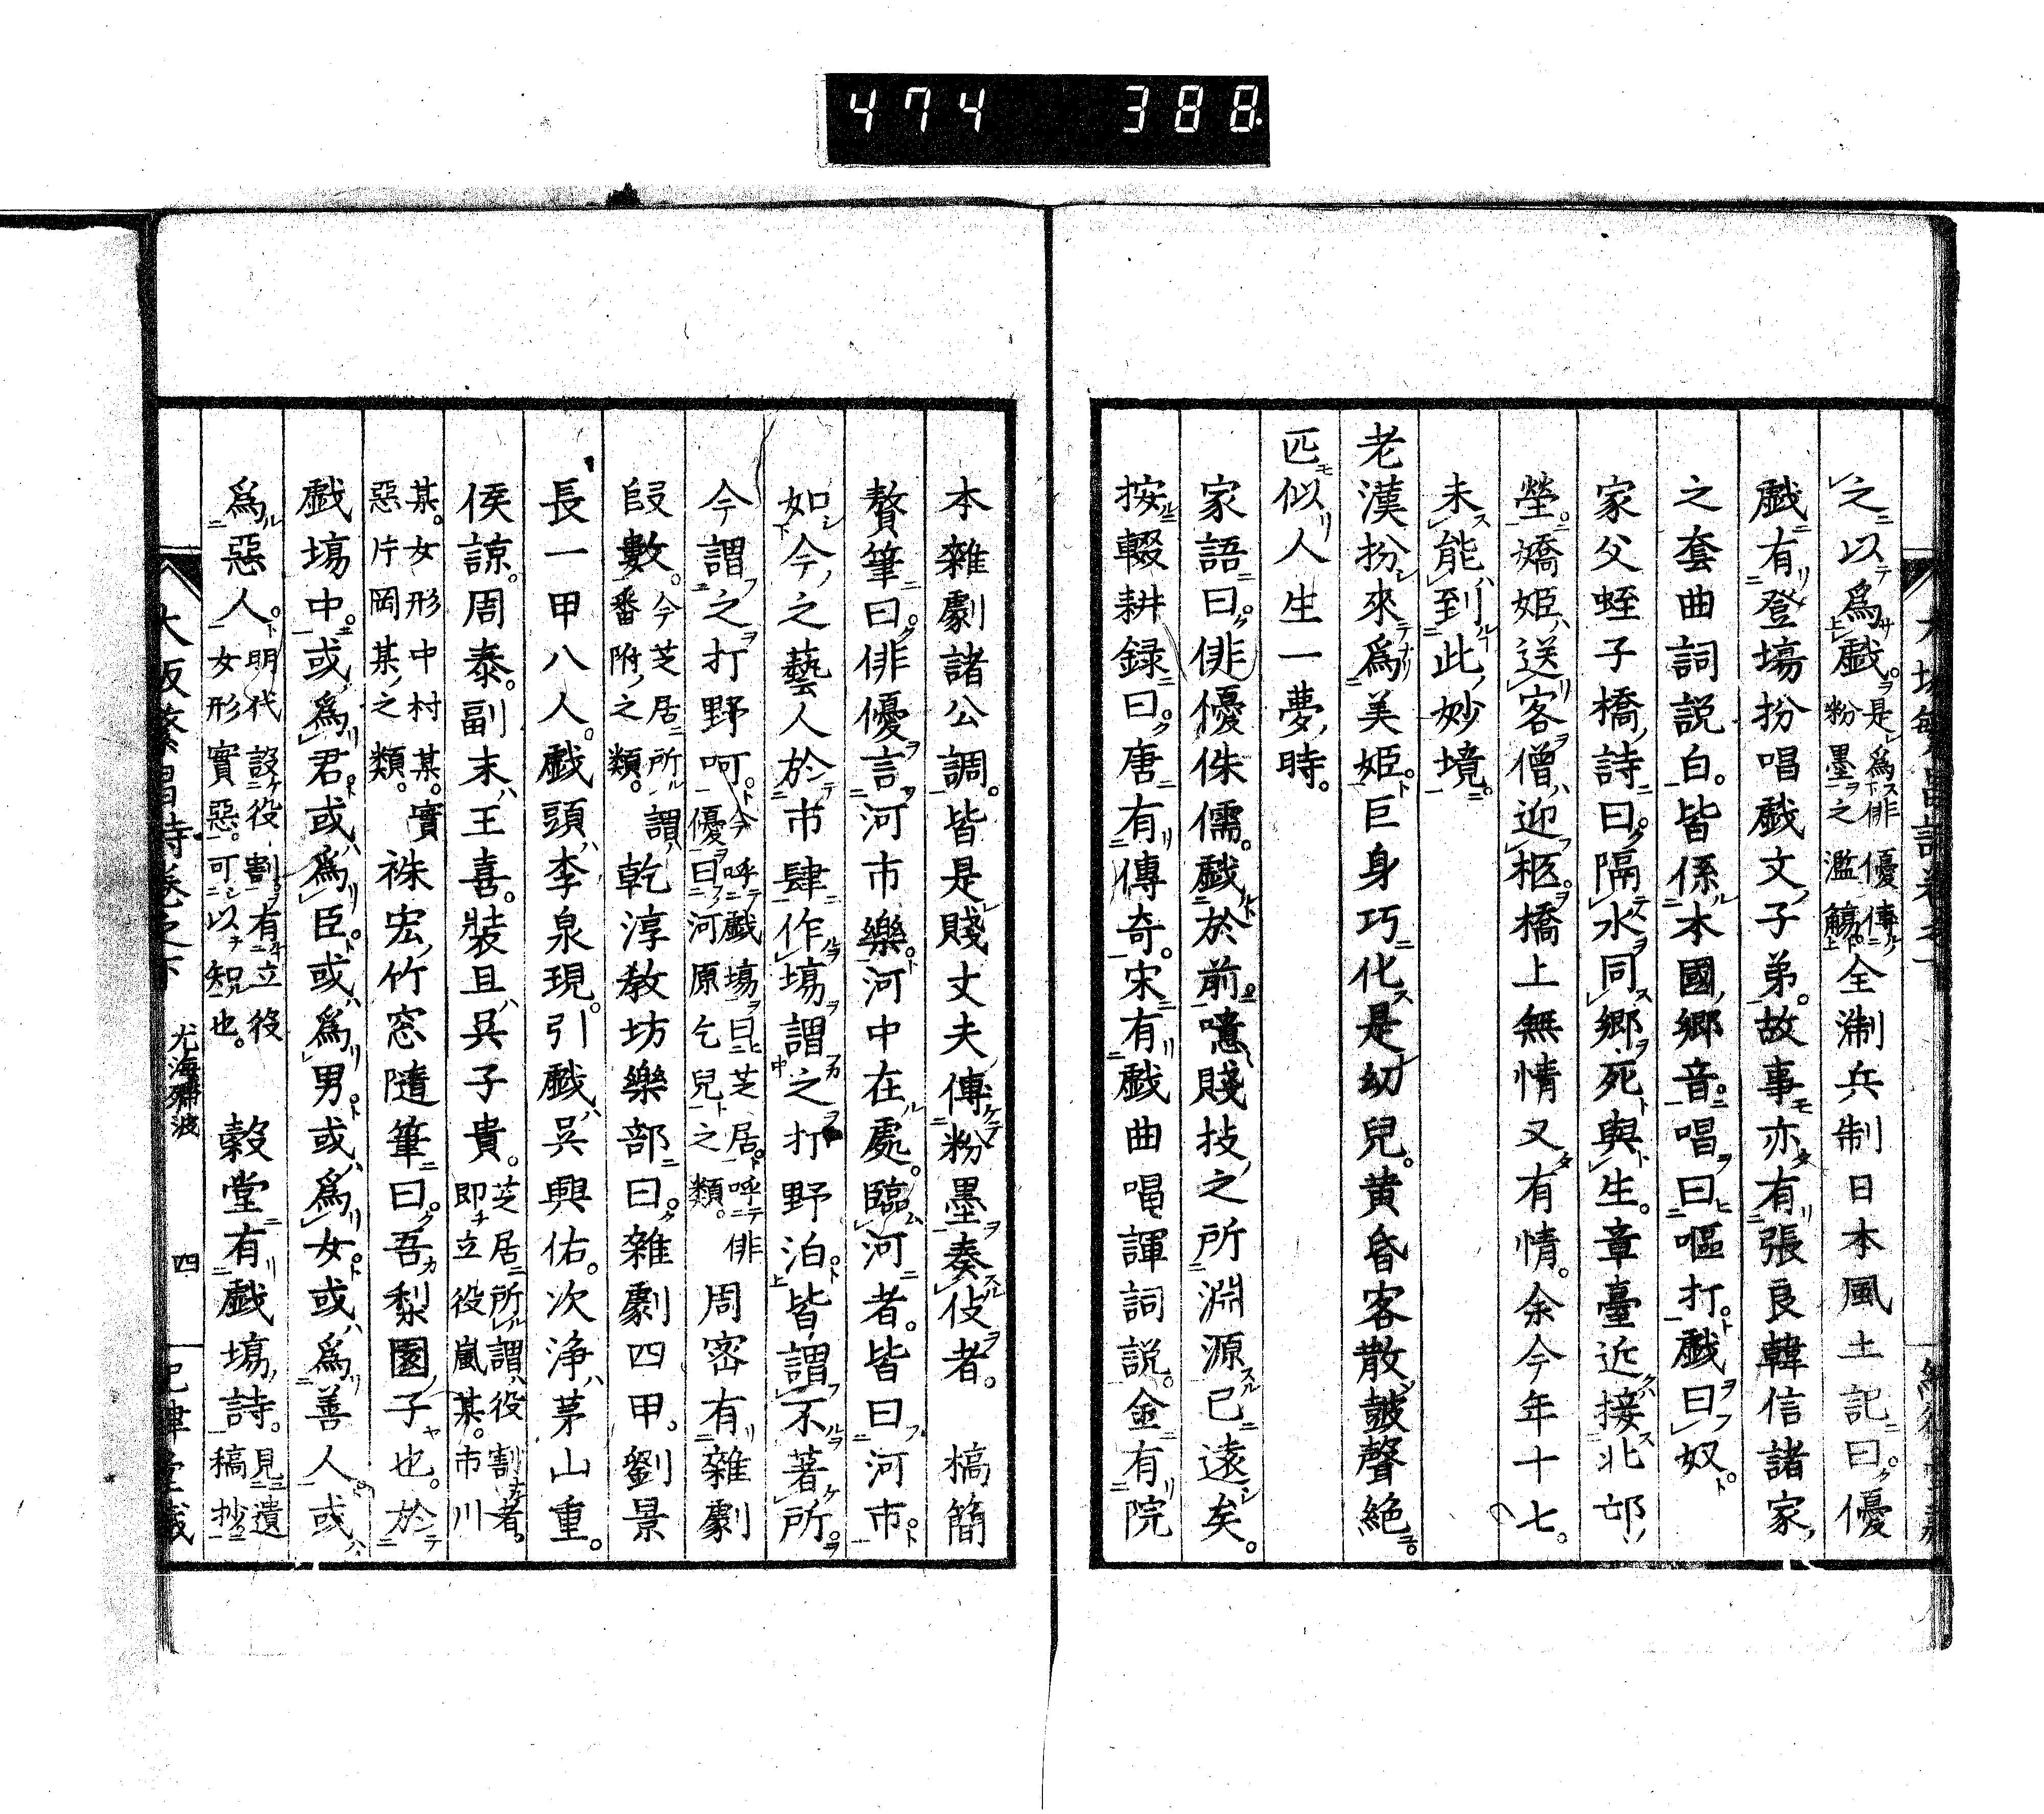 474 388
之以爲戲是爲俳優傳粉墨之濫觴全浙兵制日本風土記曰優
戲有登場扮唱戲文子弟故事亦有張良韓信諸家
之套曲詞説白皆係本國鄉音唱曰嘔打戲曰奴
家父蛭子橋詩曰隔水同鄉死與生章臺近接北邙
塋嬌姬送客僧迎柩橋上無情又有情余今年十七
未能到此妙境
老漢扮來爲美姬巨身巧化是幼兒黄昏客散皷聲絶
匹似人生一夢時
家語曰俳優侏儒戲於前噫賤技之所淵源已遠矣
按輟耕録曰唐有傳奇宋有戲曲唱諢詞説金有院
本雜劇諸公調皆是賤丈夫傳粉墨奏伎者 槁簡
贅筆曰俳優言河市樂河中在處臨河者皆曰河市
如今之藝人於市肆作場謂之打野泊皆謂不著所
今謂之打野呵今呼戲場曰芝居呼俳優曰河原乞兒之類 周密有雜劇
段數今芝居所謂番附之類 乾淳教坊樂部曰雜劇四甲劉景
長一甲八人戲頭李泉現引戲吳興佑次淨茅山重
侯諒周泰副末王喜裝且吳子貴芝居所謂役割者即立役嵐某市川
某女形中村某實惡片岡某之類 袾宏竹窓隨筆曰吾梨園子也於
戲場中或爲君或爲臣或爲男或爲女或爲善人或
爲惡人明代設役割有立役女形實惡可以知也 穀堂有戲場詩見遺稿抄
大阪繁昌詩卷之下 尤海殢波 四